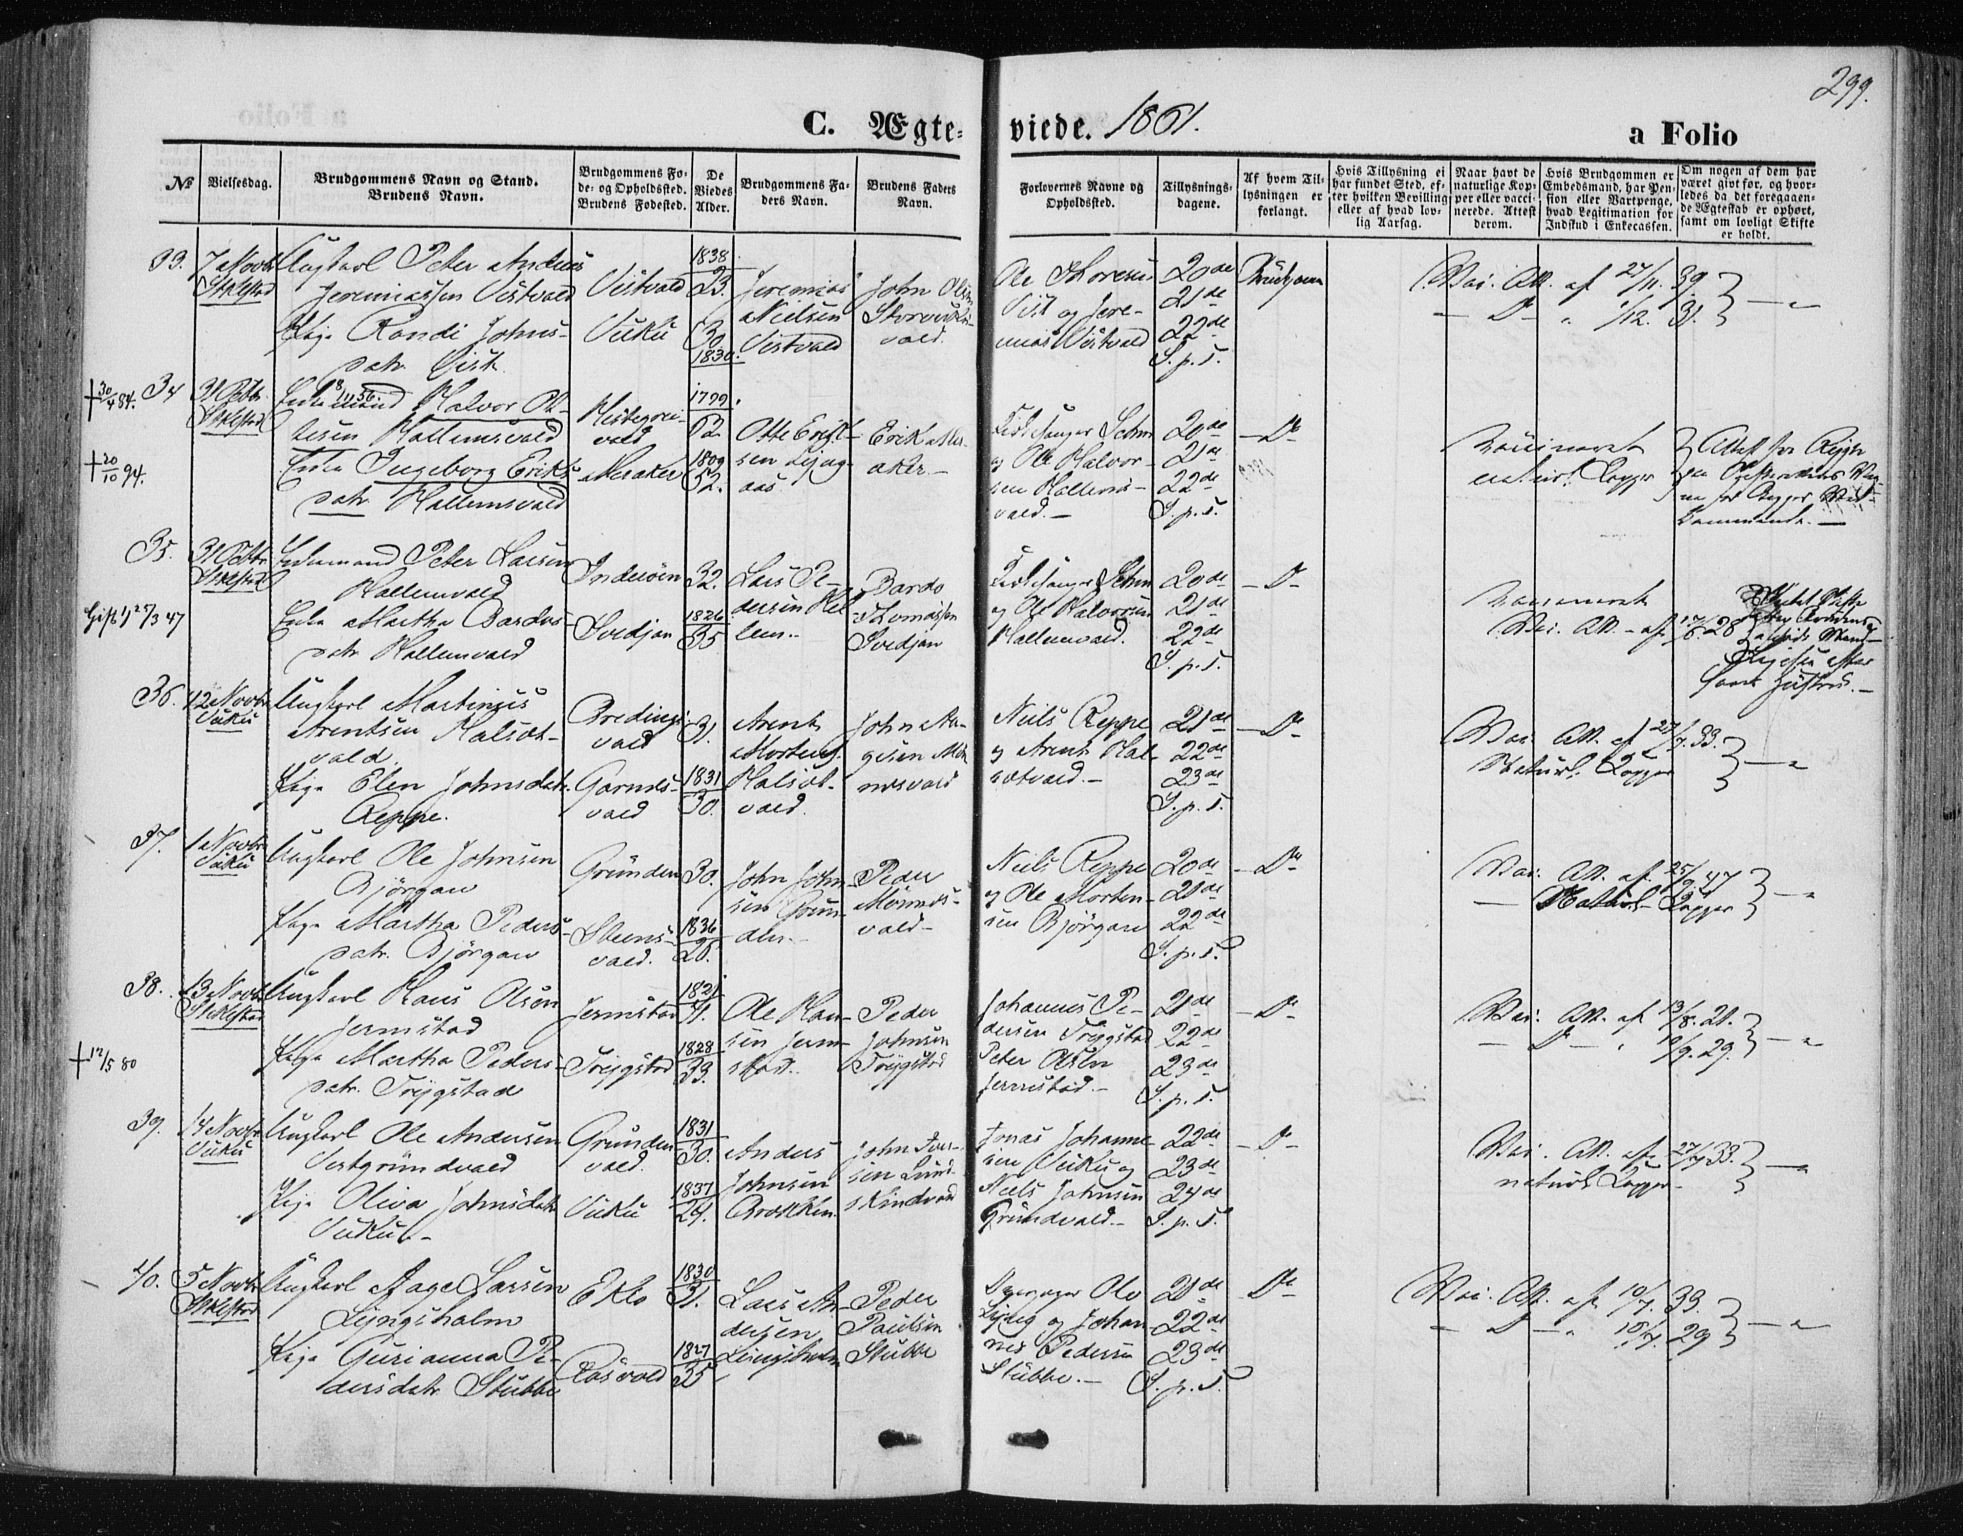 299.
C. Ægte-viede. 1861.
a Folio
No
Vielsesdag.
Brudgommens Navn og Stand.
Brudens Navn.
Brudgommens Fø-
de- og Opholdssted.
Brudens Fødested.
De
Viedes
Alder.
Brudgommens Fa-
ders Navn.
Brudens Faders
Navn.
Forlovernes Navne og
Opholdssted.
Tillysnings-
dagene.
Af hvem Til-
lysningen er
forlangt.
Hvis Tillysning ei
har fundet Sted, ef-
ter hvilken Bevilling
eller af hvad lov-
lig Aarsag.
Naar havt de
naturlige Kop-
per eller vacci-
nerede. Attest
derom.
Hvis Brudgommen er
Embedsmand, har Pen-
sion eller Vartpenge,
hvad Legitimation for
Indskud i Enkecassen.
Om nogen af dem har
været givt før, og hvor-
ledes da det foregaaen-
de Ægteskab er ophørt,
samt om lovligt Skifte
er holdt.
33. 7 Novbr Ungkarl Peter Andreas
Stiklestad Jeremiassen Vistvald
Pige Randi Johns-
datr. Vist
Vistvald
Vuku
1838
23.
30
1830.
Jeremias
Nielsen
Vistvald
John Olsen
vald.
Ole Thoresen
Vist og Jere-
mias Vistvald
20de
21de
22de
S. p. T.
Brudgommen
Vac. Att. af 27/11. 39
— Do — " 1/12. 31.
†30/4 84. 34 31 Octbr. Enkemand Halvor Ot-
Stiklestad tesen Hallemsvald
†20/10 94. Enke Ingeborg Eriks-
datr. Hallemsvald
vald
Meraker
1799
62.
1809
52.
Otte Erik-
sen Ljng-
aas
Erik Mer-
aker.—
Kirkesanger Schm
og Ole Halvor-
sen Hallems-
vald.—
20de
21de
22de
S. p. T.
— Do
vaccineret
naturl. Kopper
Attest for
35. 31 Octbr Enkemand Peter Larsen
Stiklestad Hallemvald
Gift 1) 25/3 47 Enke Martha Bardos-
datr Hallemvald
Inderøen
Svedjan
32.
1826
35
Lars Pe-
dersen Hal-
lem.
Bardo
Thomassen
Svedjan
Kirkesanger Schm
og Ole Halvorsen
Hallemvald.
20de
21de
22de
S. p. T.
— Do
vaccineret
Vac. Att. — af 17/6 28
36. 12 Novbr Ungkarl Martinus
Vuku Arentsen Halset-
vald.
Pige Elen Johnsdatr.
Reppe.
Bredings-
vald
Garnes-
vald
31.
1831
30.
Arent
Mortens.
Halset-
vald.
John Aa-
gesen
Niels Reppe
og Arent Hal-
setvald.—
21de
22de
23de
S. p. T.
— Do
Vac. Att. af 27/7. 33.
Naturl. Kopper
37. 1 Novbr Ungkarl Ole Johnsen
Vuku Bjørgan
Pige Martha Peders-
datr. Bjørgan
Grunden
Steens-
vald.
30.
1836
25.
John John-
sen Grun-
den.—
Peder
vald—
Niels Reppe
og Ole Morten-
sen Bjørgan
20de
21de
22de
S. p. T.
— Do
Vac. Att. af 25/9 47
— Naturl. Kopper
38. 13 Novbr Ungkarl Hans Olsen
Stiklestad Jermstad
†12/5 80 Pige Martha Peders-
datr. Trygstad
Jermstad
Trygstad
1821
41.
1828
33.
Ole Han-
sen Jerm-
stad.
Peder
Johnsen
Trygstad
Johannes Pe-
dersen Trygstad
Peter Olsen
Jermstad.—
21de
22de
23de
S. p. T.
— Do
Vac. Att. af 13/8. 21.
— Do — " 10/9. 29.
39. 14 Novbr Ungkarl Ole Andersen
Vuku Vestgrundvald
Pige Oliva Johnsdatr
Vuku.—
Grunden
vald.
Vuku
1831
30.
1837
24.
Anders
Johnsen
Brækken.
John Iver-
sen Lund-
skindvald
Jonas Johanne-
sen Vuku og
Niels Johnsen
Grundvald.—
22de
23de
24de
S. p. T.
— Do
Vac. Att. af 27/7 33.
naturl. Kopper
40. 5 Novbr Ungkarl Aage Larsen
Stiklestad Lyngsholm
Pige Gurianna Pe-
dersdatr. Stubbe
Eklo
Rosvold
1830
31.
1827
35
Lars An-
dersen
Peder
Paulsen
Stubbe
Ole
og Johan-
nes Pedersen
Stubbe.—
21de
22de
23de
S. p. T.
Do
Vac. Att. af 10/7. 33.
— Do — " 10/7. 29